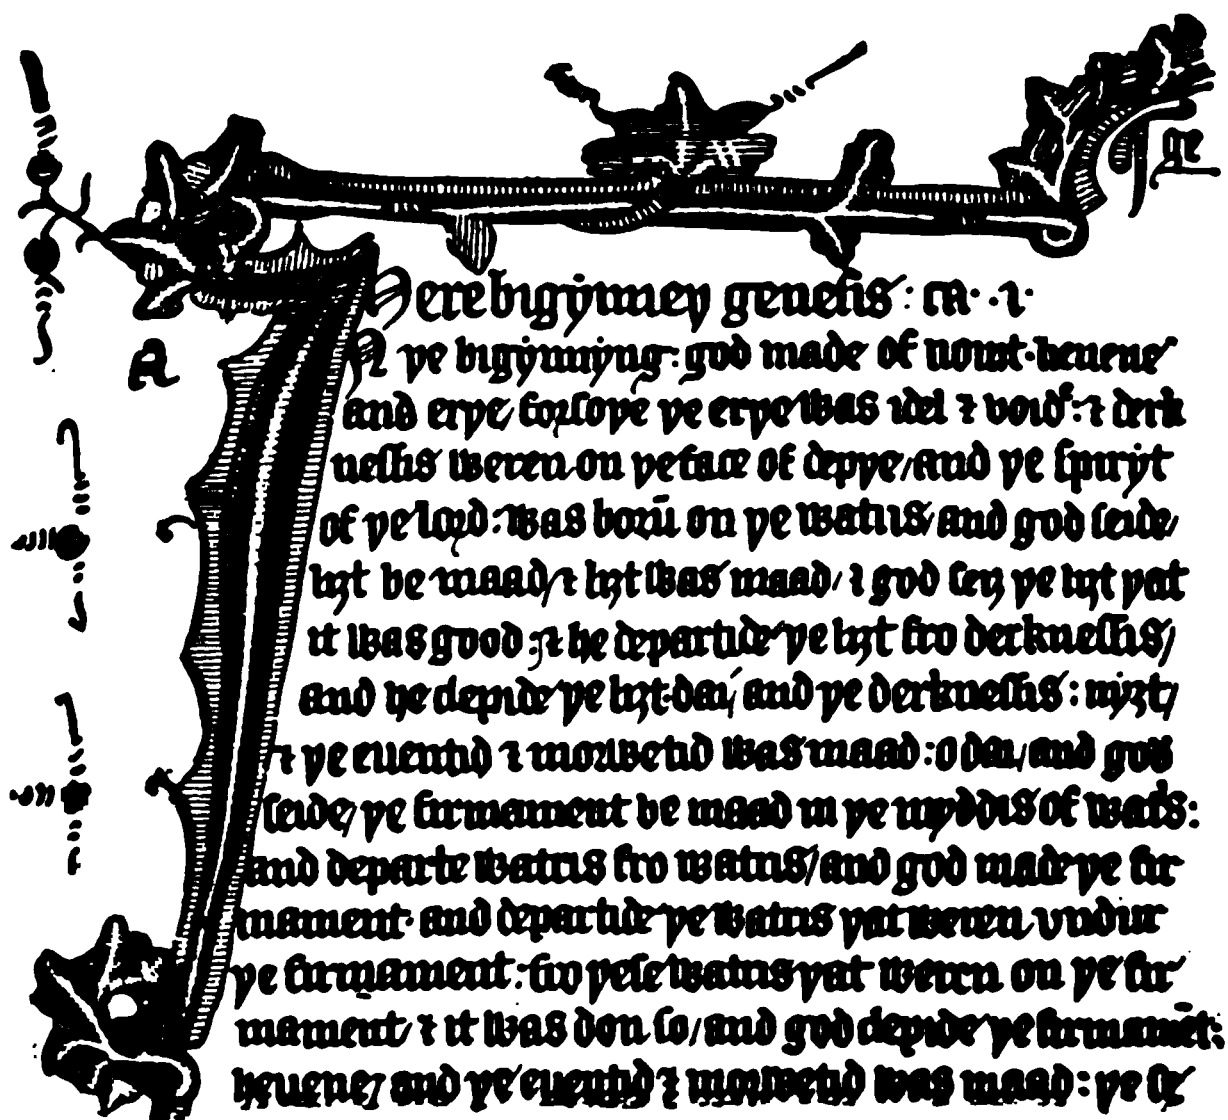 ge
Here bigẏnneþ genesis : ca · .1·
A
In þe bigẏnnẏng · god made of nouȝt · heuene
and erþe / forsoþe þe erþe was idel ⁊ void : ⁊ derk
nessis weren on þe face of depþe / and þe spirẏt
of þe lord · was borū on þe watris / and god seide /
liȝt be maad / ⁊ liȝt was maad / ⁊ god seiȝ þe liȝt þat
it was good : ⁊ he departide þe liȝt fro derknessis /
and he clepide þe liȝt · dai / and þe derknessis : nẏȝt /
⁊ þe euentid ⁊ morwetid was maad : o dai / and god
seide / þe firmament be maad in þe mẏddis of wat's :
and departe watris fro watris / and god made þe fir
mament · and departide þe watris þat weren vndur
þe firmament · fro þese watris þat weren on þe fir
mament / ⁊ it was don so / and god clepide þe firmamēt :
heuene / and þe euentid ⁊ morwetid was maad : þe se